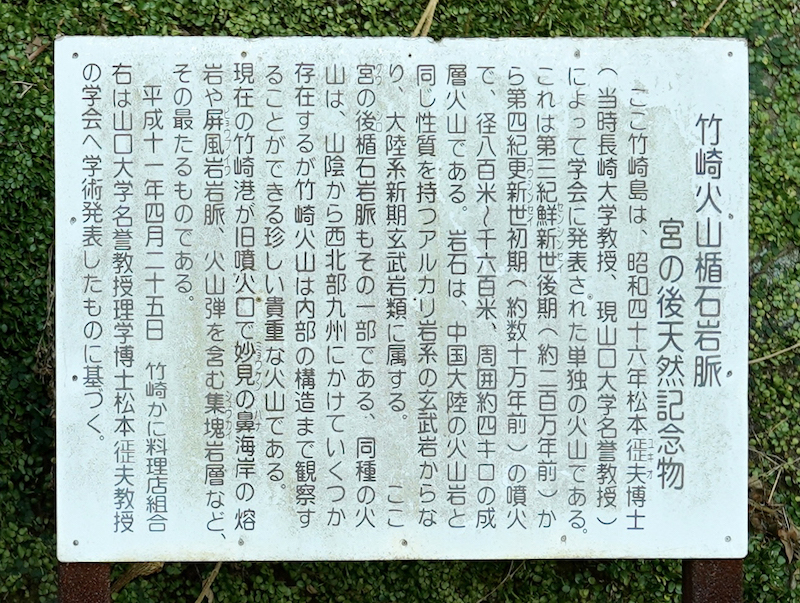 竹崎火山楯石岩脈
宮の後天然記念物
ここ竹崎島は、昭和四十六年松本徰夫博士
ユキオ
(当時長崎大学教授、現山口大学名誉教授)
によって学会に発表された単独の火山である。
これは第三紀鮮新世後期(約二百万年前)か
センシンセイ
ら第四紀更新世初期(約数十万年前)の噴火
コウシンセイ
で、径八百米〜千六百米、周囲約四キロの成
層火山である。岩石は、中国大陸の火山岩と
同じ性質を持つアルカリ岩系の玄武岩からな
り、大陸系新期玄武岩類に属する。 ここ
宮の後楯石岩脈もその一部である、同種の火
グウ シロ
山は、山陰から西北部九州にかけていくつか
存在するが竹崎火山は内部の構造まで観察す
ることができる珍しい貴重な火山である。
現在の竹崎港が旧噴火口で妙見の鼻海岸の熔
ミョウケン ハナ
岩や屏風岩岩脈、火山弾を含む集塊岩層など、
ビョウブイワ シュウカイ
その最たるものである。
平成十一年四月二十五日 竹崎かに料理店組合
右は山口大学名誉教授理学博士松本徰夫教授
の学会へ学術発表したものに基づく。